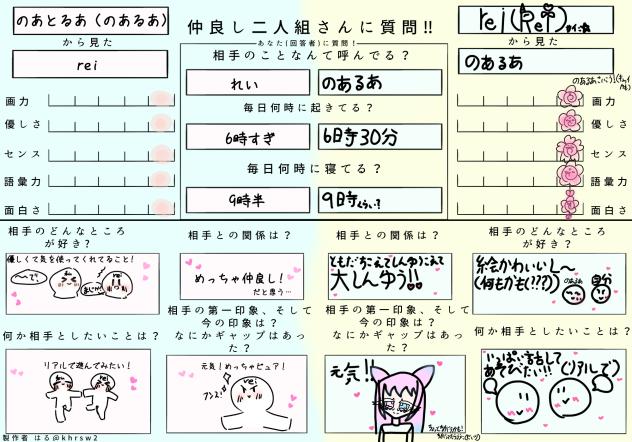 のあとるあ(のあるあ)
から見た
rei
画力
優しさ
センス
語彙力
面白さ
仲良し二人組さんに質問!!
あなた(回答者)に質問!
相手のことなんて呼んでる?
れい
のあるあ
毎日何時に起きてる?
6時すぎ
6時30分
毎日何時に寝てる?
9時半
9時くらい?
rei(Rei)
から見た
のあるあ
画力
優しさ
センス
語彙力
面白さ
相手のどんなところ
が好き?
優しくて気を使ってくれてること!
rei
相手との関係は?
めっちゃ仲良し!
だと思う…
相手との関係は?
ともだちこえてしんゆうこえて
大しんゆう!!
相手のどんなところ
が好き?
絵かわいいし〜
(何もかも(???))
のあるあ
自分
何か相手としたいことは?
リアルで遊んでみたい!
rei
相手の第一印象、そして
今の印象は?
なにかギャップはあっ
た?
元気!めっちゃピュア!
rei
相手の第一印象、そして
今の印象は?
なにかギャップはあっ
た?
元気!!
何か相手としたいことは?
いっぱい話して
あそびたい!!(リアルで)
製作者 はる@khrsw2